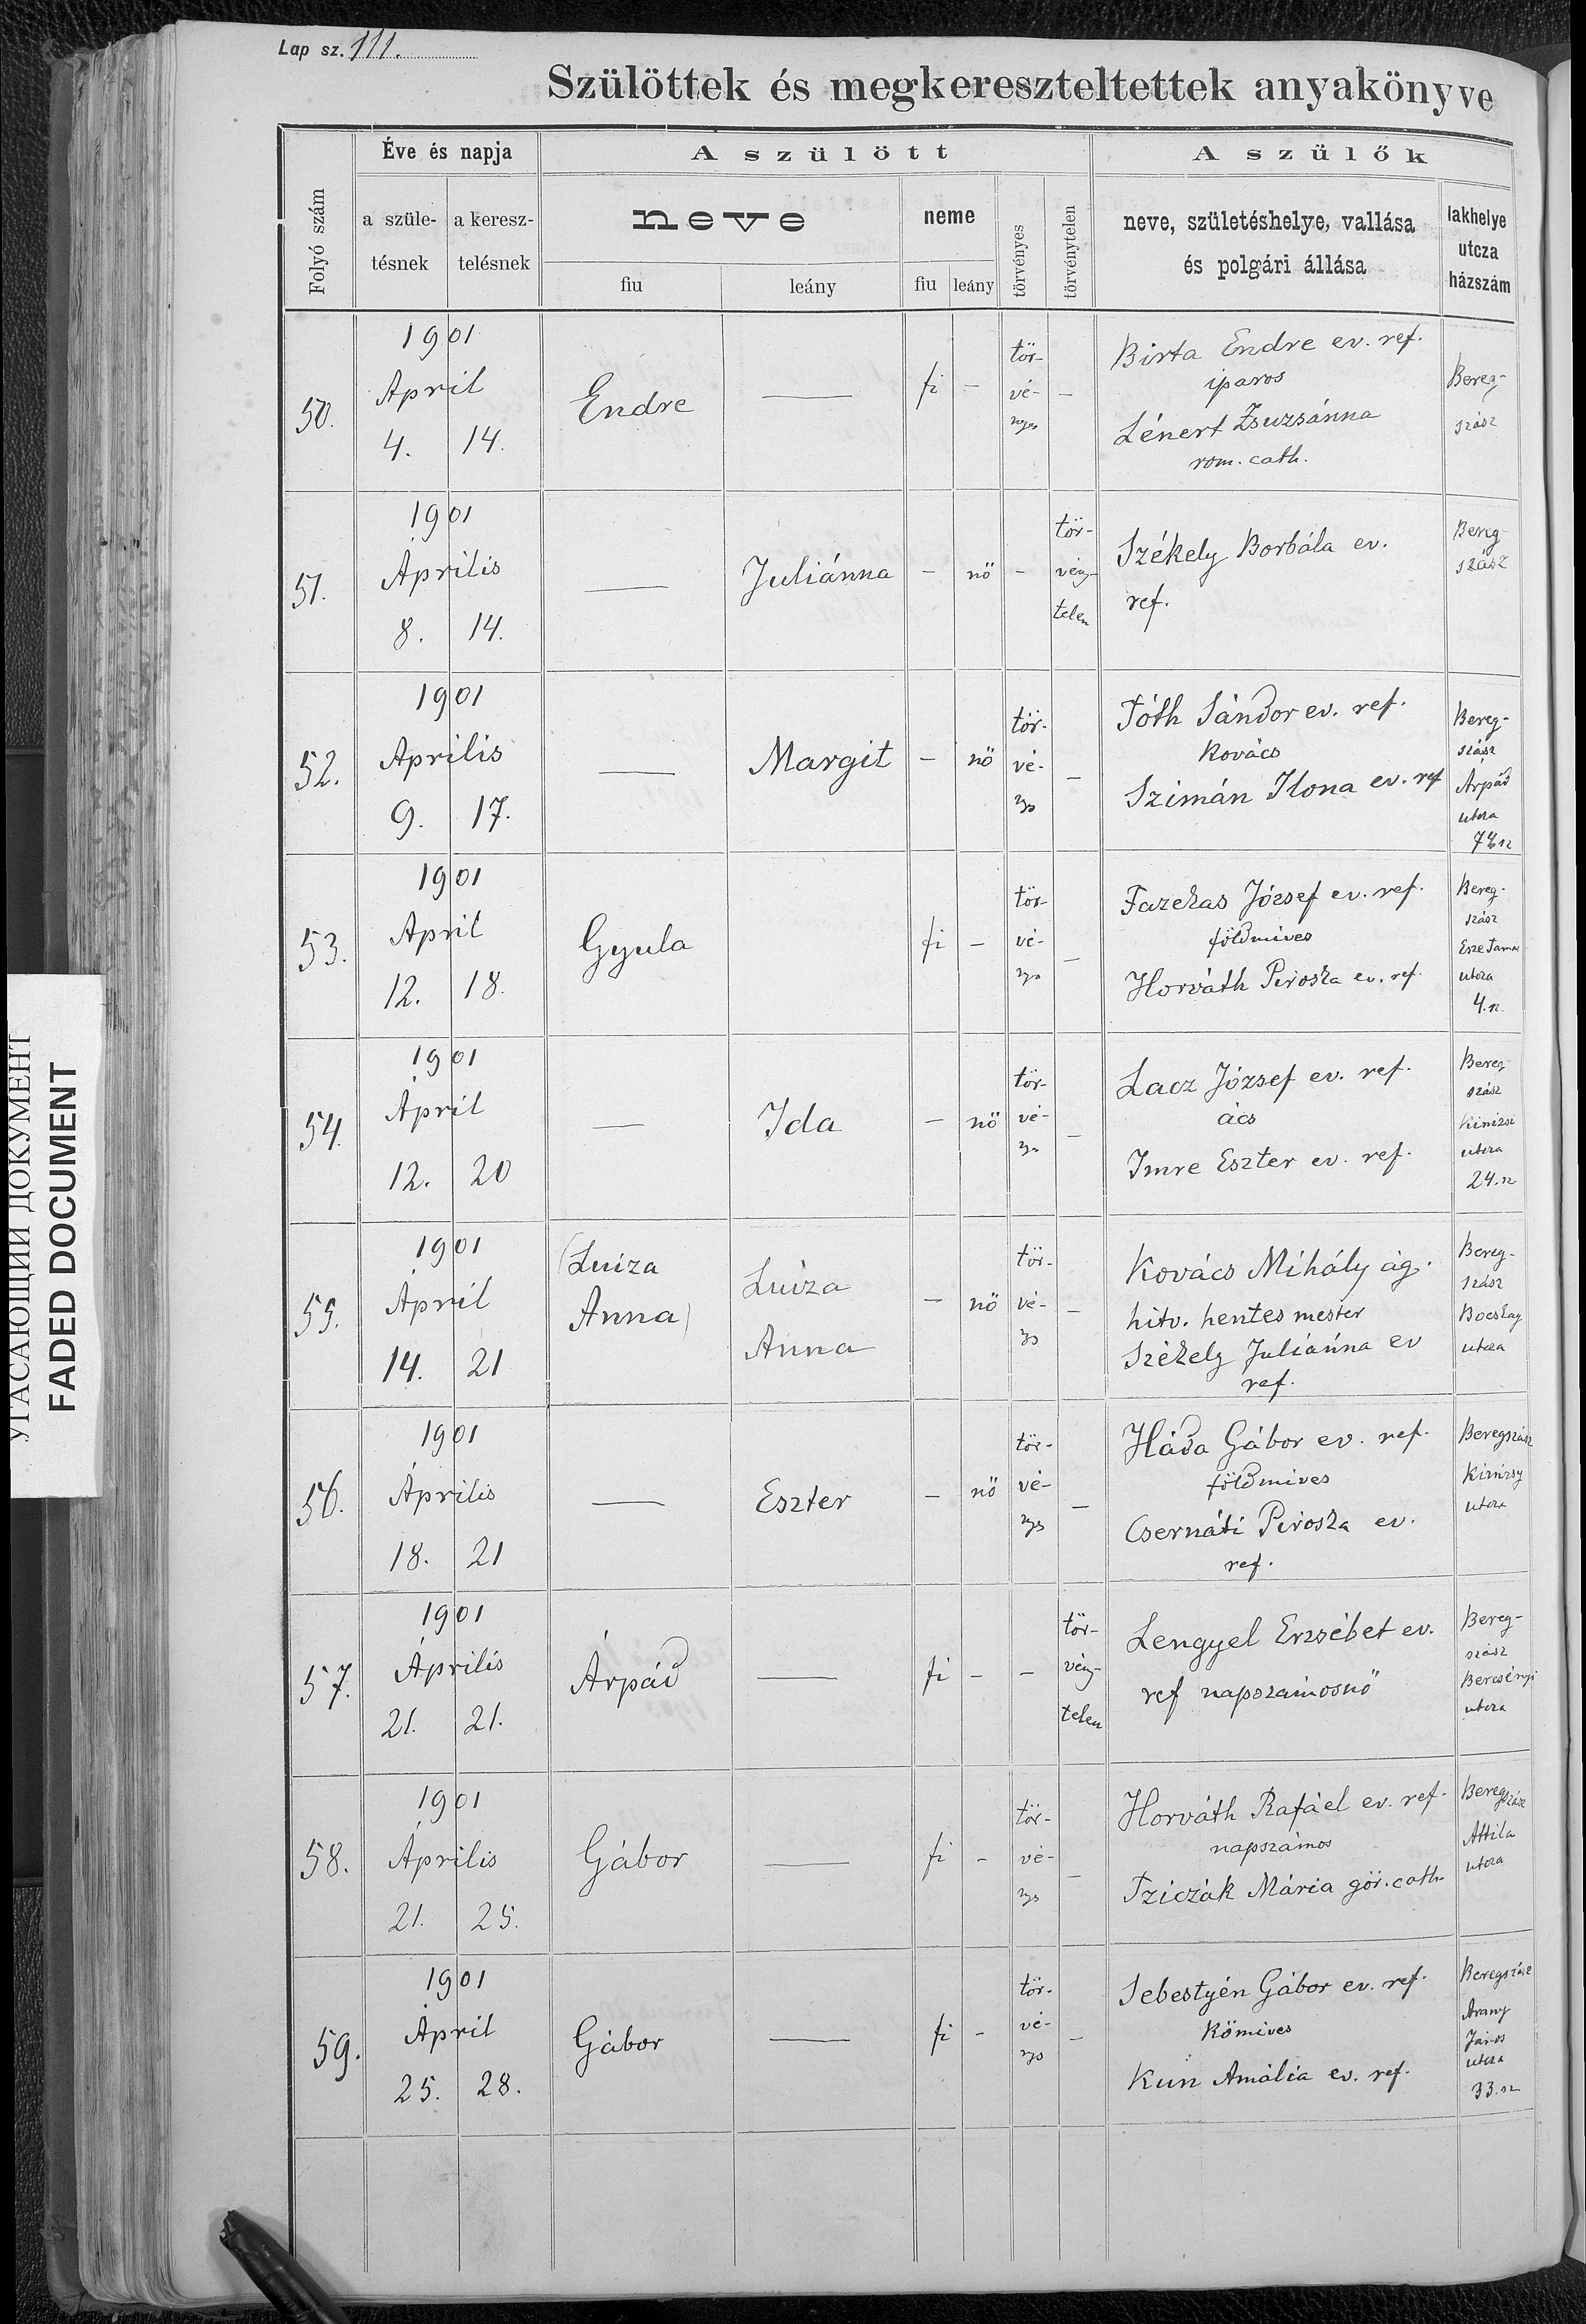 Lap sz. 111.
Szülöttek és megkereszteltettek anyakönyve
Folyó szám
Éve és napja
a szüle-
tésnek
a keresz-
telésnek
A szülött
neve
fiu
leány
neme
fiu
leány
törvényes
törvénytelen
A szülők
neve, születéshelye, vallása
és polgári állása
lakhelye
utcza
házszám
50.
1901
April
4. 14.
Endre
—
fi
-
tör-
vé-
nyes
-
Birta Endre ev. ref.
iparos
Lénert Zsuzsánna
rom. cath.
Bereg-
szász
51.
1901
Április
8. 14.
—
Juliánna
-
nö
-
tör-
vény-
telen
Székely Borbála ev.
ref.
Bereg-
szász
52.
1901
Április
9. 17.
—
Margit
-
nö
tör-
vé-
nys
-
Tóth Sándor ev. ref.
Kovács
Szimán Ilona ev. ref
Bereg-
szász
Árpád
utcza
53.
1901
April
12. 18.
Gyula
fi
-
tör-
vé-
nys
-
Fazekas József ev. ref.
földmives
Horváth Piroska ev. ref.
Bereg-
szász
Esze Tamás
utcza
4. sz.
54.
1901
Ápril
12. 20
—
Ida
-
nö
tör-
vé-
nys
-
Lacz József ev. ref.
ács
Imre Eszter ev. ref.
Bereg-
szász
Kinizsi
utcza
24. sz
55.
1901
Ápril
14. 21
(Luiza
Anna)
Luiza
Anna
-
nö
tör-
vé-
nys
-
Kovács Mihály ág.
hitv. hentes mester
Székely Juliánna ev
ref.
Bereg-
szász
Bocskay
utcza
56.
1901
Április
18. 21
—
Eszter
-
nö
tör-
vé-
nyes
-
Háda Gábor ev. ref.
földmives
Csernáti Piroska ev.
ref.
Beregszász
Kinizsy
utcza
57.
1901
Április
21. 21.
Árpád
—
fi
-
-
tör-
vény-
telen
Lengyel Erzsébet ev.
ref napszámosnö
Bereg-
szász
Bercsényi
utcza
58.
1901
Április
21. 25.
Gábor
—
fi
-
tör-
vé-
nys
-
Horváth Rafáel ev. ref.
napszámos
Tziczák Mária gör. cath.
Beregszász
Attila
utcza
59.
1901
Ápril
25. 28.
Gábor
—
fi
-
tör-
vé-
nys
-
Sebestyén Gábor ev. ref.
Kömives
Kun Amália ev. ref.
Beregszász
Arany
János
utcza
33. sz
УГАСАЮЩИЙ ДОКУМЕНТ
FADED DOCUMENT